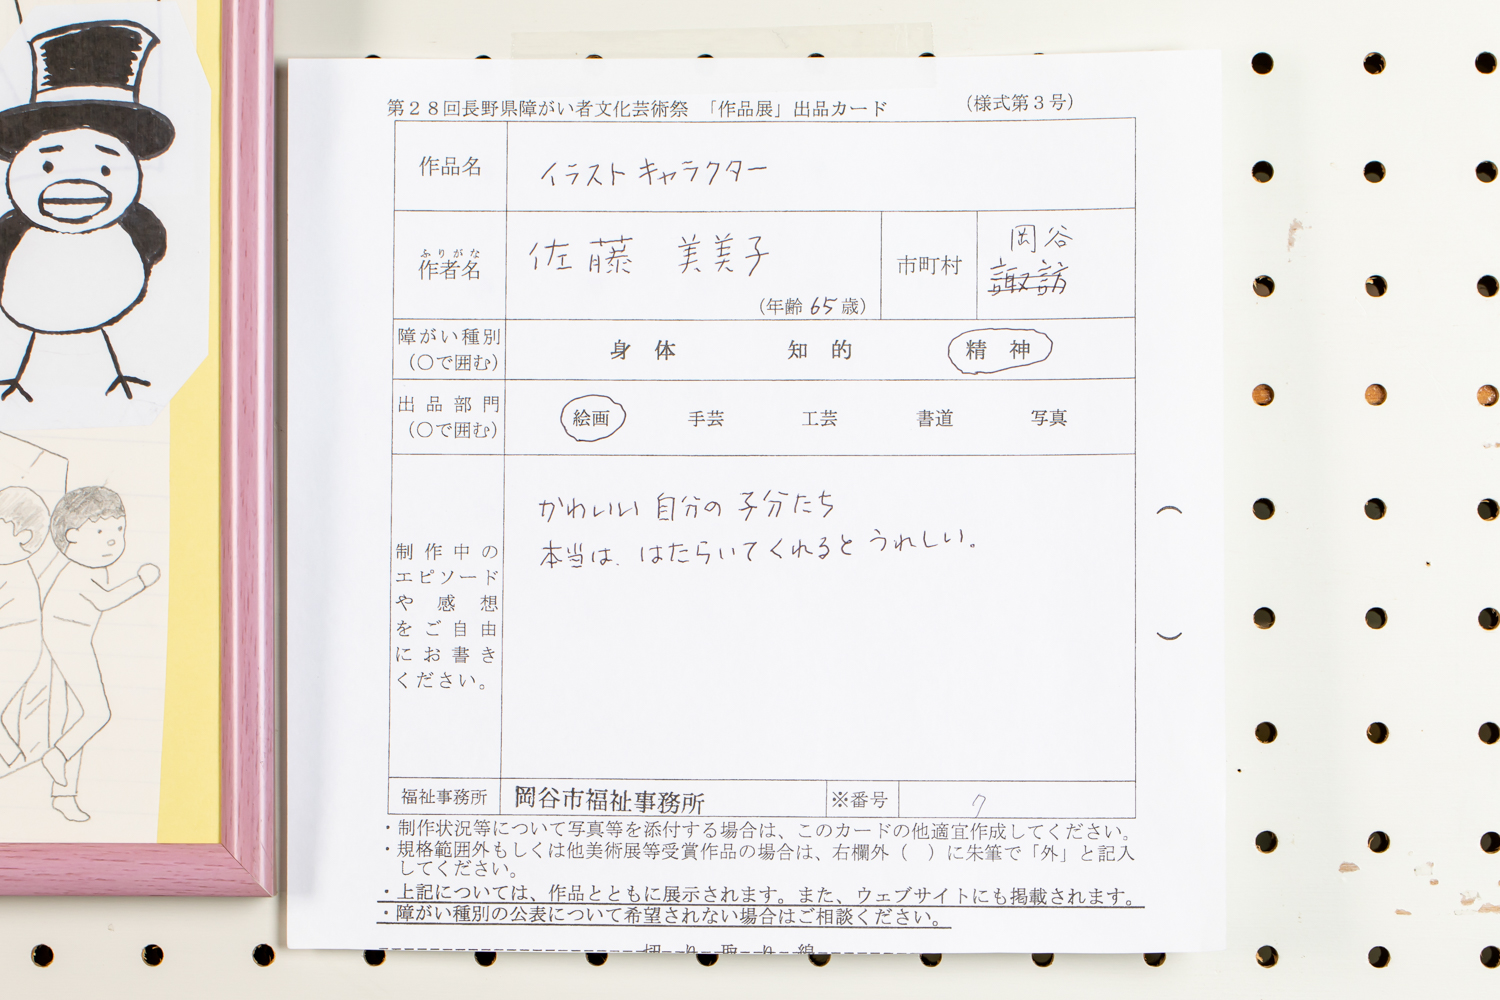 第２８回長野県障がい者文化芸術祭 「作品展」出品カード （様式第３号）
作品名 イラスト キャラクター
ふりがな
作者名 佐藤 美美子
（年齢 65 歳）
市町村 岡谷
諏訪
障がい種別
（〇で囲む）
身 体 知 的 精 神
出品部門
（〇で囲む）
絵画 手芸 工芸 書道 写真
制作中の
エピソード
や感想
をご自由
にお書き
ください。
かわいい 自分の 子分たち
本当は、はたらいてくれるとうれしい。
福祉事務所 岡谷市福祉事務所 ※番号 7
・制作状況等について写真等を添付する場合は、このカードの他適宜作成してください。
・規格範囲外もしくは他美術展等受賞作品の場合は、右欄外（ ）に朱筆で「外」と記入
してください。
・上記については、作品とともに展示されます。また、ウェブサイトにも掲載されます。
・障がい種別の公表について希望されない場合はご相談ください。
切り取り線